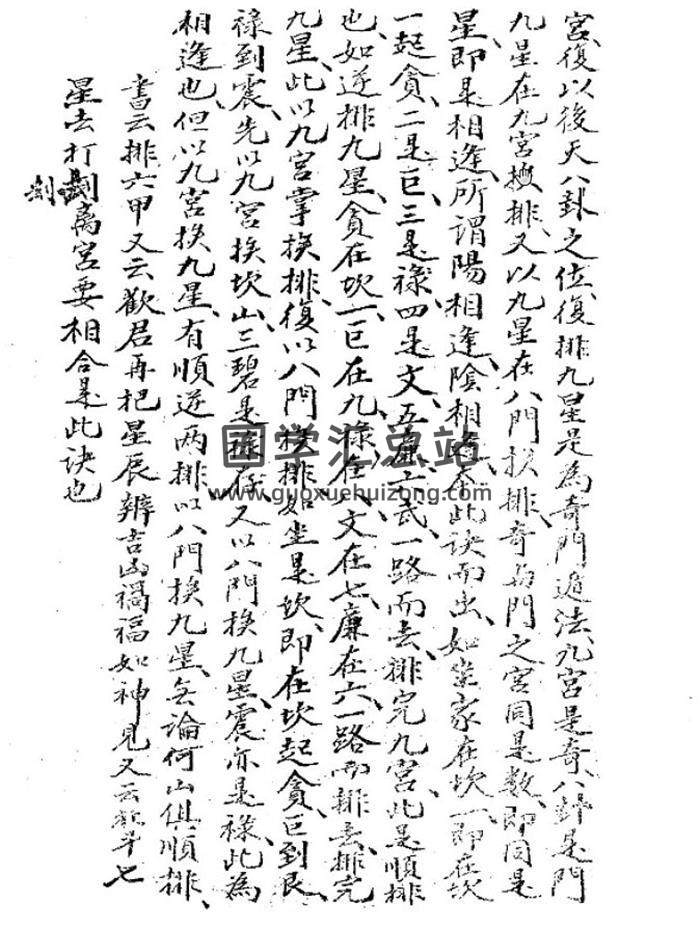 宮、復以後天八卦之位、復排九星、是為奇門遁法、九宮是奇、八卦是門
九星在九宮挨排、又以九星在八門挨排、奇與門之宮同是數、即同是
星、即是相逢、所謂陽相逢陰相本此訣而出、如坐家在坎一、即在坎
一起貪、二是巨、三是祿、四是文、五廉、六武、一路而去、排完九宮、此是順排
也、如逆排九星、貪在坎一、巨在九、祿在八、文在七、廉在六、一路而排去、排完
九星、此以九宮掌挨排、復以八門挨排、如坐是坎、即在坎起貪、巨到艮、
祿到震、先以九宮挨坎山、三碧是祿存、又以八門挨九星、震亦是祿、此為
相逢也、但以九宮挨九星、有順逆兩排、以八門挨九星、無論何山俱順排、
書云排六甲又云勸君再把星辰辨吉凶禍福如神見又云北斗七
星去打劫離宮要相合是此訣也
劫
国学汇总站
www.guoxuehuizong.com